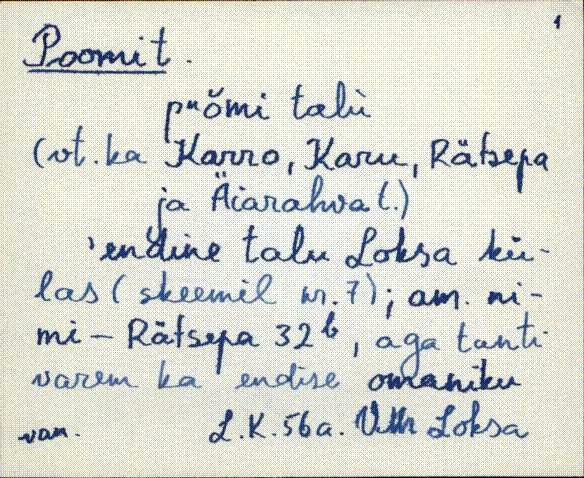 1
Poomit.
pᵘŏmi talù
(vt. ka Karro, Karu, Rätsepa
ja Äiarahva (.)
'endine talu Loksa kü-
las (skeemil nr. 7); am. ni-
mi - Rätsepa 32ᵇ, aga tunti
varem ka endise omaniku
van. L.K. 56a. Loksa